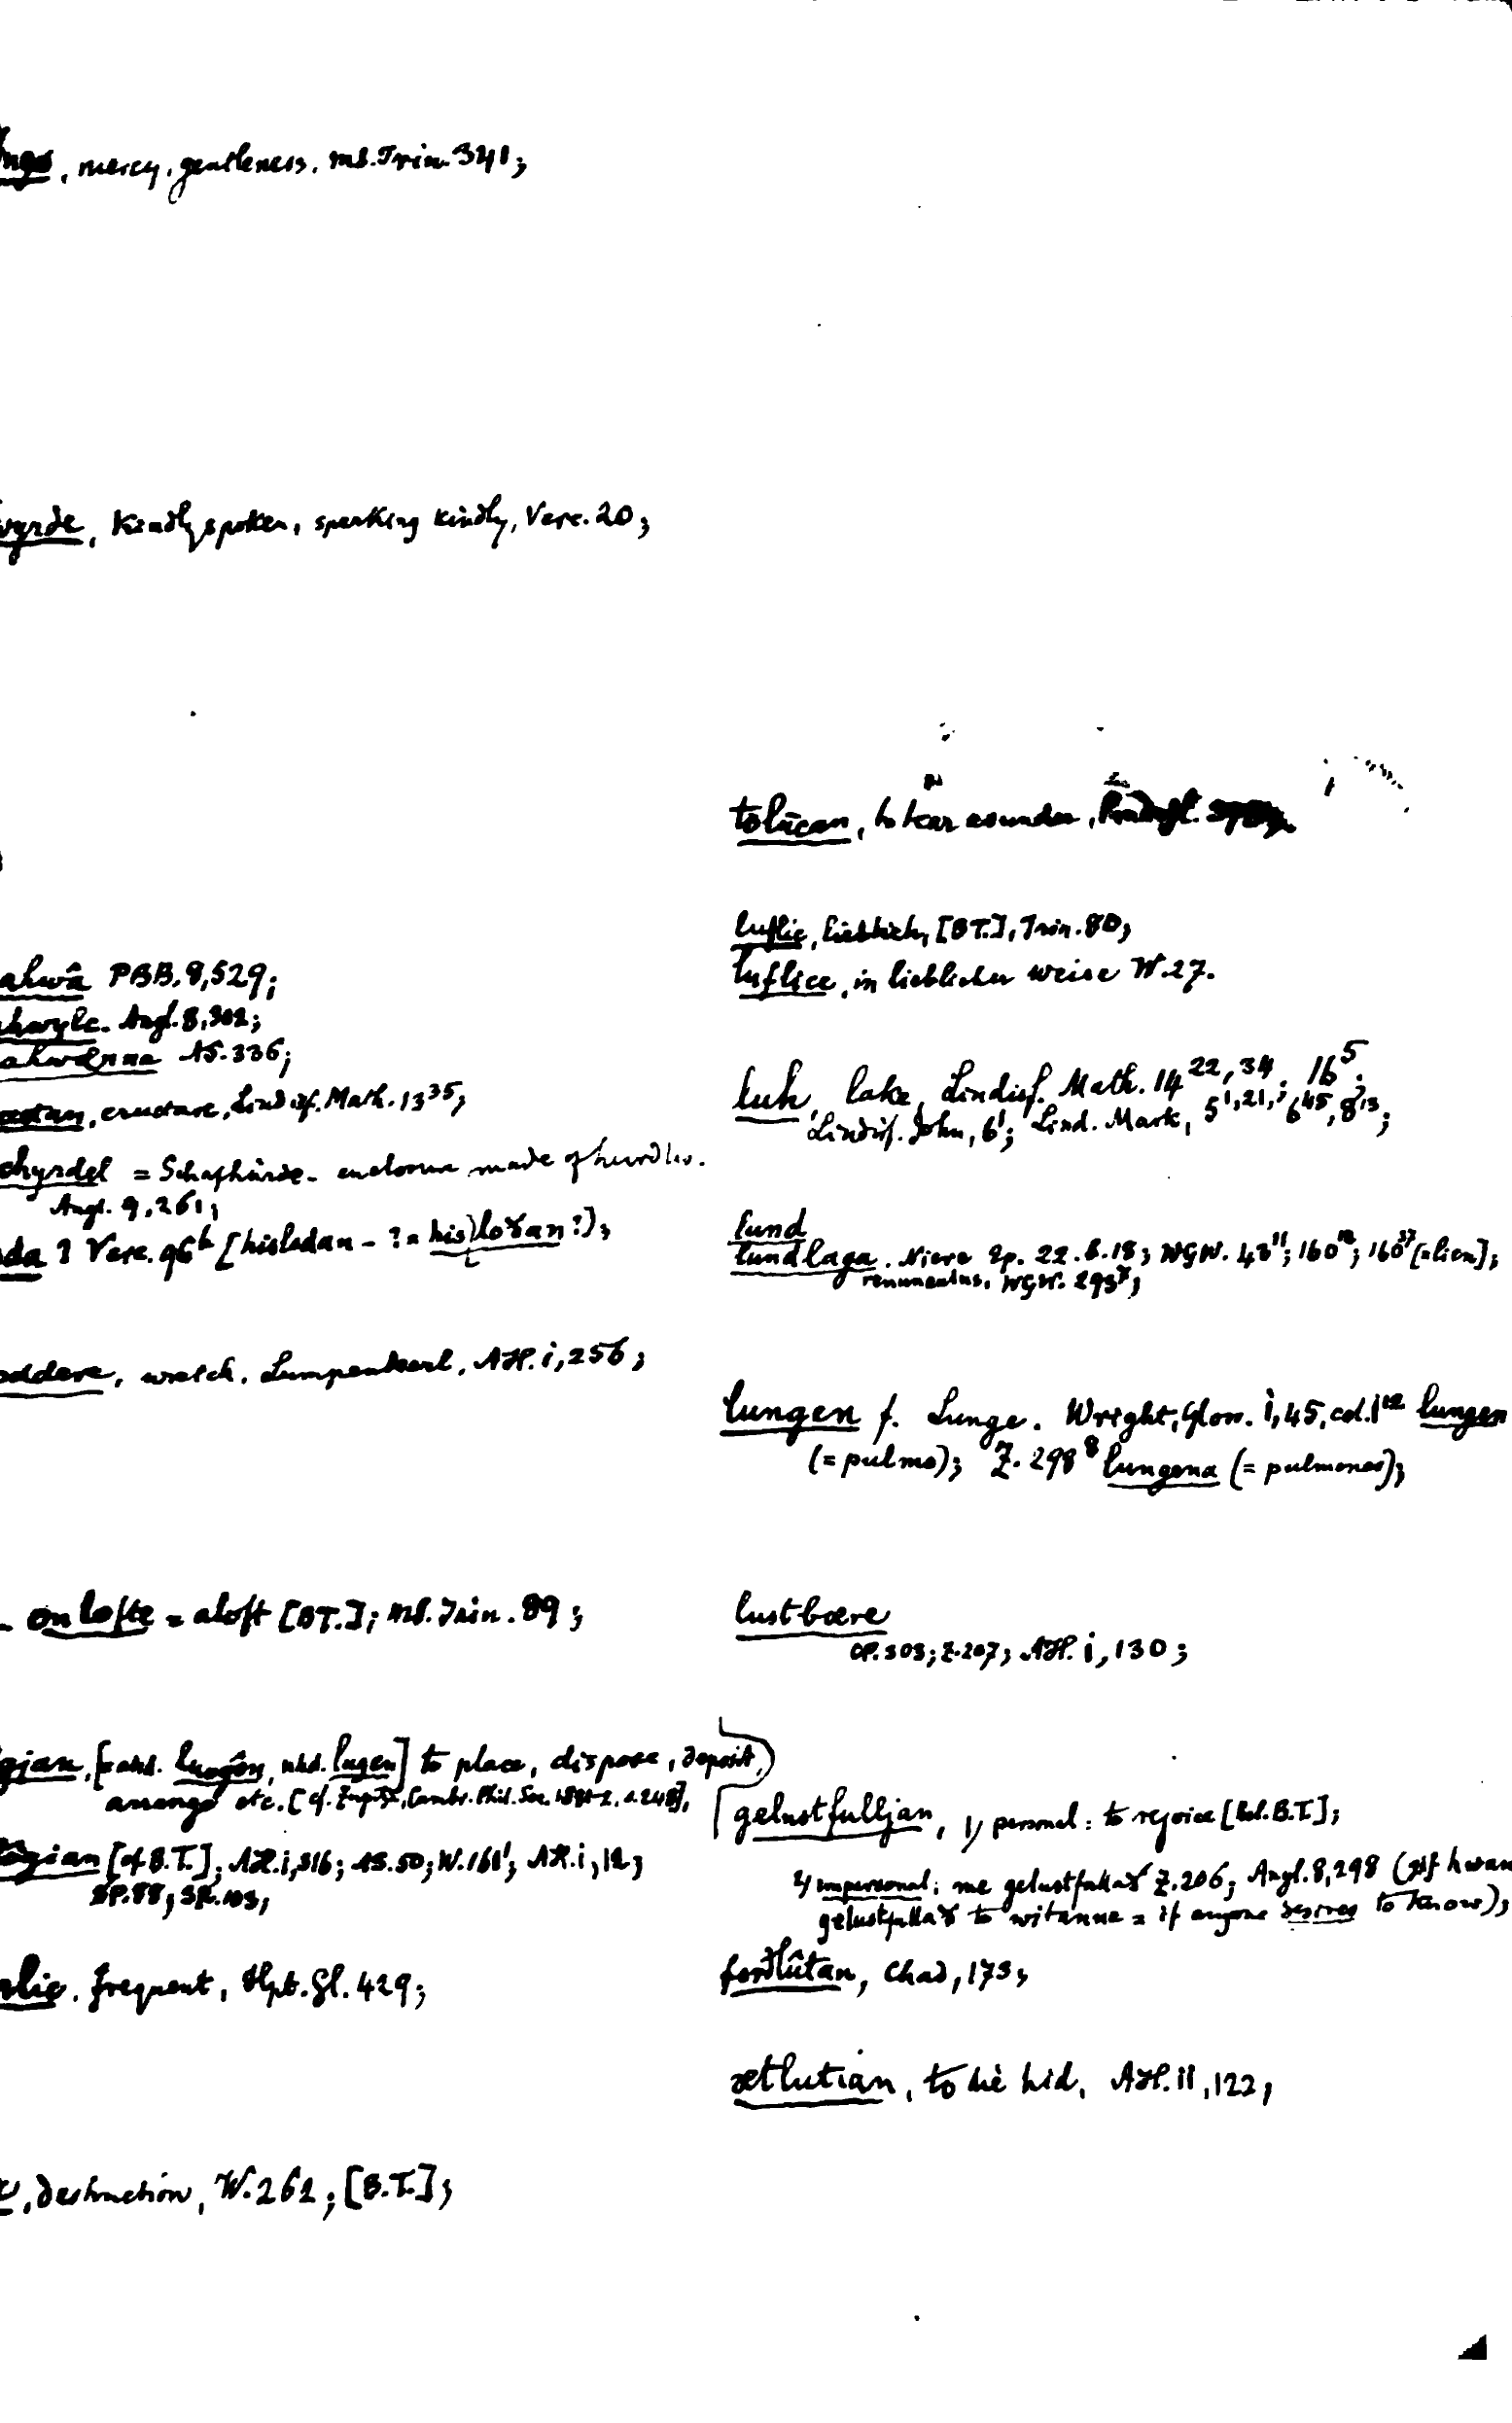 mercy, gentleness. ms. Trin. 341;
wyrde, Kindly spoken, speaking kindly, Verc. 20;
ahwâ PBB. 9,529;
hwylc. Angl. 8,302;
ahwænne AS. 336;
eructare, Lindisf. Math. 13³⁵;
hyrdel = Schafhürde - enclosure made of hurdles.
Angl. 9,261;
da? Verc. 96ᵇ [hisladan - ? = his) loðan?];
oddere, wretch. Lumpenkerl. AH. i,256;
on lofte = aloft [BT.]; ms. Trin. 89;
gian, [= ahd. nhd. lugen] to place, dispose, deposit,
arrange etc. [cf. Zupitza, Cambr. Phil. Soc.
ogian [cf B.T.]; AH. i,316; AS. 50; W. 161¹; AH. i, 12;
SP. 88;
lic. frequent, Hpt. Gl. 429;
destruction, W. 262; [B.T.];
tolūcan, to tear asunder,
luflic, lieblich, [BT.], Trin. 80;
luflice, in lieblicher weise W. 27.
luh, lake, Lindisf. Math. 14²²,³⁴. 16⁵.
Lindisf. John, 6¹; Lind. Mark, 5¹,²¹,; 6⁴⁵, 8¹³;
lund
lundlaga. Niere Ep. 22. b. 18; WGW. 43¹¹; 160¹²; 160³⁷ [= lien];
renunculus, WGW. 293⁷;
lungen f. Lunge. Wright, Gloss. i,45, col. 1¹² lungen
(= pulmo); Z. 298⁸ lungena (= pulmones);
lustbære
CP. 303; Z. 207; AH. i, 130;
gelustfulljan, 1) personal: to rejoice [B.T.];
2) impersonal: me gelustfullað Z. 206; Angl. 8,298 (gif hwan
gelustfullað to witanne = if anyone desires to know);
forðlûtan, Chad, 173;
ætlutian, to lie hid, AH. ii, 122;